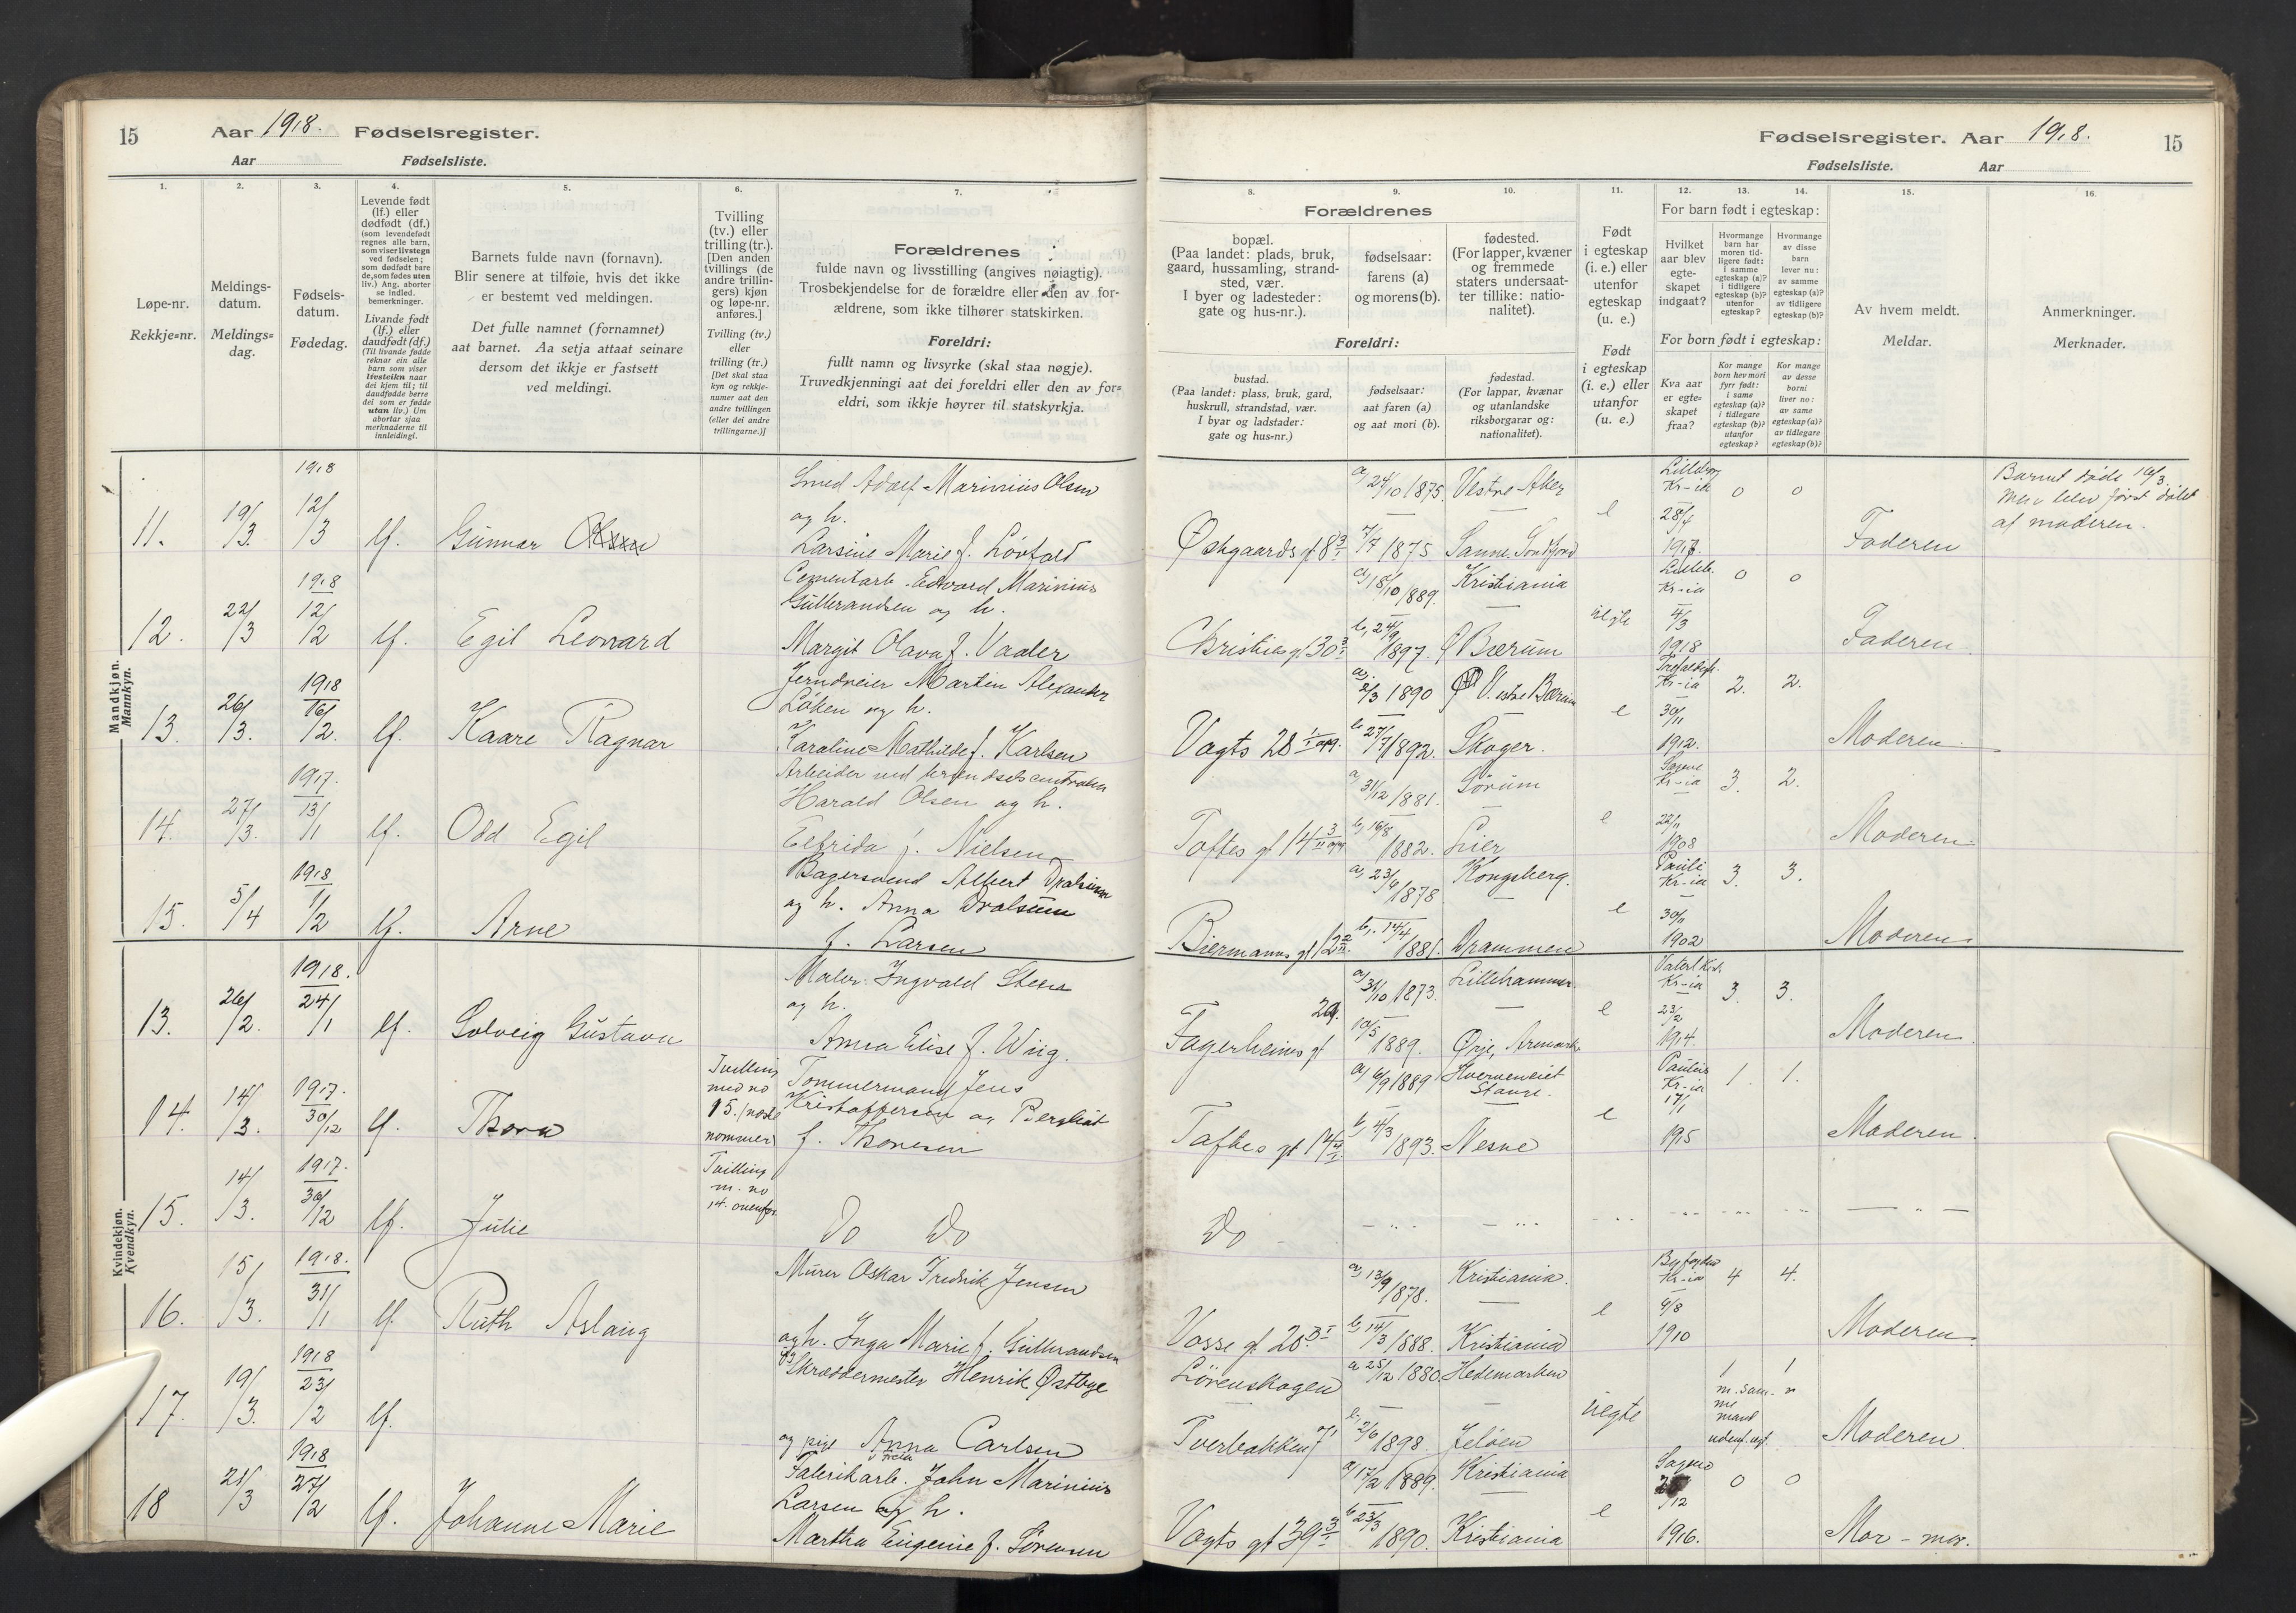 15
Aar 1918. Fødselsregister.
Aar
Fødselsliste.
1.
2.
3.
4.
5.
6.
7.
Løpe-nr.
Rekkje=nr.
Meldings-
datum.
Meldings=
dag.
Fødsels-
datum.
Fødedag.
Levende født
(lf.) eller
dødfødt (df.)
(som levendefødt
regnes alle barn,
som viser livstegn
ved fødselen;
som dødfødt bare
de, som fødes uten
liv.) Ang. aborter
se indled.
bemerkninger.
Livande født
(lf.) eller
daudfødt (df.)
(Til livande fødde
reknar ein alle
barn som viser
livsteikn naar
dei kjem til; til
daudfødde berre
dei som er fødde
utan liv.) Um
abortar sjaa
merknaderne til
innleidingi.
Barnets fulde navn (fornavn).
Blir senere at tilføie, hvis det ikke
er bestemt ved meldingen.
Det fulle namnet (fornamnet)
aat barnet. Aa setja attaat seinare
dersom det ikkje er fastsett
ved meldingi.
Tvilling
(tv.) eller
trilling (tr.).
[Den anden
tvillings (de
andre trillin-
gers) kjøn
og løpe-nr.
anføres.]
Tvilling (tv.)
eller
trilling (tr.)
[Det skal staa
kyn og rekkje-
numer aat den
andre tvillingen
(eller dei andre
trillingarne.)]
Forældrenes
fulde navn og livsstilling (angives nøiagtig).
Trosbekjendelse for de forældre eller den av for-
ældrene, som ikke tilhører statskirken.
Foreldri:
fullt namn og livsyrke (skal staa nøgje).
Truvedkjenningi aat dei foreldri eller den av for=
eldri, som ikkje høyrer til statskyrkja.
Mandkjøn.
Mannkyn.
11. 19/3. 1918 12/3 lf. Gunnar
Smed Adolf Marinius Olsen
og h.
Larsine Marie f. Løvfald
12. 22/3 1918 12/2 lf. Egil Leonard
Cementarb. Edvard Marinius
Gulbrandsen og h.
Margit Olava f. Vaaler
13. 26/3. 1918 16/2. lf. Kaare Ragnar
Jerndreier Martin Alexander
Løken og h.
Karoline Mathilde f. Karlsen
14. 27/3. 1917. 13/1 lf. Odd Egil
Arbeider ved
Harald Olsen og h.
f. Nielsen
15. 5/4 1918 1/2 lf. Arne
Bagersvend Albert Dralsum
og h. Anna Dralsum
f. Larsen
Kvindekjøn.
Kvendkyn.
13. 26/2. 1918. 24/1 lf. Solveig Gustava
Maler Ingvald Steen
og h.
Anna Elise f. Wiig.
14. 14/3. 1917. 30/12 lf. Thora
Tvilling
med no
15. (næste
nommer)
Tømmermand Jens
Kristoffersen og Bergliot
f. Thoresen
15. 14/3. 1917. 30/12 lf. Julie
Tvilling
m. no
14. ovenfor.
Do Do
16. 15/3. 1918. 31/1 lf. Ruth Aslaug
Murer Oskar Fredrik Jensen
og h. Inga Marie f. Gulbrandsen
17. 19/3. 1918 23/2 lf.
Skræddermester Henrik Østbye
og pige Anna Carlsen
18 21/3 1918 27/2 lf. Johanne Marie
Fabrikarb. John Marinius
Larsen og h.
Martha Eugenie f. Sørensen
Fødselsregister. Aar 1918.
15
Fødselsliste.
Aar
8.
9.
10.
11.
12.
13.
14.
15.
16.
Forældrenes
bopæl.
(Paa landet: plads, bruk,
gaard, hussamling, strand-
sted, vær.
I byer og ladesteder:
gate og hus-nr.).
fødselsaar:
farens (a)
og morens (b).
fødested.
(For lapper, kvæner
og fremmede
staters undersaat-
ter tillike: natio-
nalitet).
Foreldri:
bustad.
(Paa landet: plass, bruk, gard,
huskrull, strandstad, vær.
I byar og ladstader:
gate og hus=nr.)
fødselsaar:
aat faren (a)
og aat mori (b).
fødestad.
(For lappar, kvænar
og utanlandske
riksborgarar og:
nationalitet).
Født
i egteskap
(i. e.) eller
utenfor
egteskap
(u. e.)
Født
i egteskap
(i. e.) eller
utanfor
(u. e.)
For barn født i egteskap:
Hvilket
aar blev
egte-
skapet
indgaat?
Hvormange
barn har
moren tid-
ligere født:
i samme
egteskap (a)?
i tidligere
egteskap (b)?
utenfor
egteskap?
Hvormange
av disse
barn
lever nu:
av samme
egteskap (a)?
av tidligere
egteskap (b)?
For born født i egteskap:
Kva aar
er egte=
skapet
fraa?
Kor mange
born hev mori
fyrr født:
i same
egteskap (a)?
i tidlegare
egteskap (b)?
utanfor
egteskap?
Kor mange
av desse
borni
liver no:
av same
egteskap (a)?
av tidlegare
egteskap (b)?
Av hvem meldt.
Meldar.
Anmerkninger.
Merknader.
a) 24/10 1875. Vestre Aker
Kr-ia 0 0
Barnet døde 16/3.
men blev først døbt
af moderen.
Østgaards gt. 8 3/I 7/7 1875. e 28/4 Faderen
a) 18/10 1889. Kristiania Kr-ia 0 0
Christies gt 30 b, 24/9 1897. Ø Bærum uegte 4/3 1918 Faderen
a. 2/3 1890 V. estre Bærum Kr-ia 2. 2.
Vogts 28 b 27/7 1892. Skoger. e 30/11 1912. Moderen
a) 31/12 1881. Sørum Kr-ia 3. 2.
Toftes gt 14 b, 16/8 1882. Lier e 22/11 1908 Moderen.
a) 23/6 1878 Kongsberg. Pauli Kr-ia 3. 3.
Biermanns gt 12 b, 14/4 1881. Drammen e 30/11 1902 Moderen.
a) 31/10 1873. Lillehammer. Kr-ia 3. 3.
Fagerheims gt 29. 10/5 1889. Ørje, Aremark e 23/2 1914. Moderen
a) 6/9 1889 Stange. Paulus Kr-ia 1. 1.
Toftes gt 14 b, 4/3 1893. Nesne e 17/1 1915 Moderen.
Do
a) 13/9 1878. Kristiania. Byfogden Kr-ia 4 4.
Vosse gt. 20. b 14/3 1888. Kristiania e 9/8 1910 Moderen.
Lørenskogen a 25/12 1880. Hedemarken 1 1
m. sam-
me
mand
Tverbakken 7 b, 2/6 1898. Jeløen uegte Moderen
a) 17/2 1889. Kristiania Sagene 0 0
Vogts gt 39 b 23/3 1890. Kristiania e /12 1916. Mor-mor.